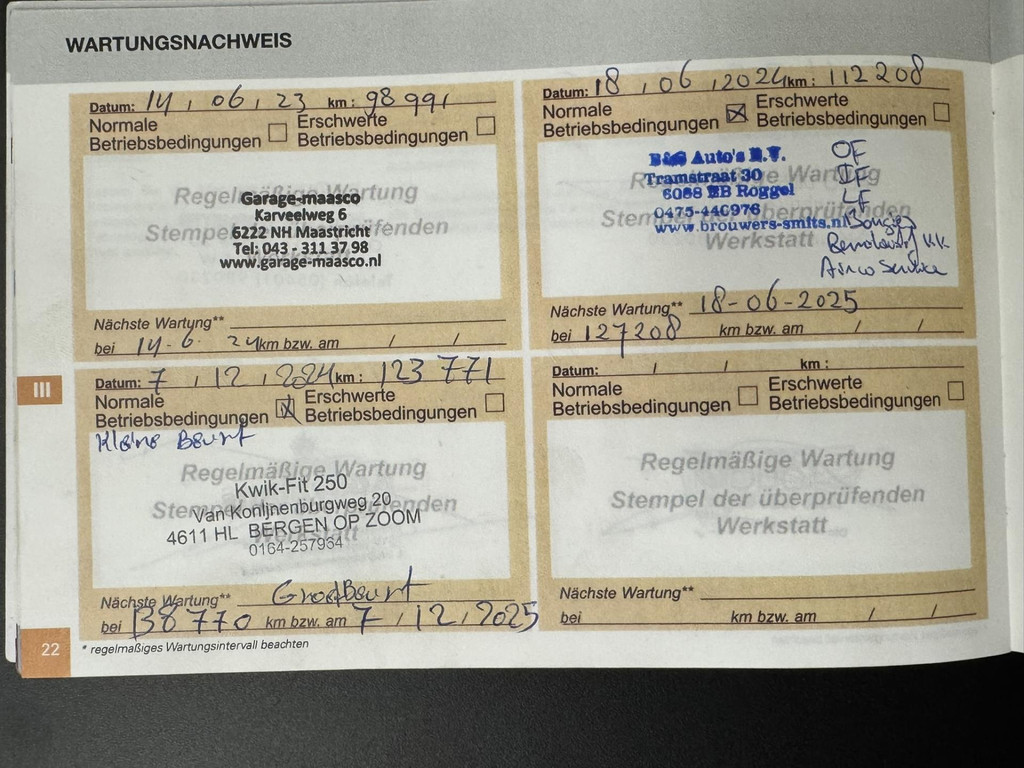 WARTUNGSNACHWEIS
Datum: 14 , 06 , 23 km : 98 991
Normale
Betriebsbedingungen
Erschwerte
Betriebsbedingungen
Regelmäßige Wartung
Stempel fenden
Garage-maasco
Karveelweg 6
6222 NH Maastricht
Tel: 043 - 311 37 98
www.garage-maasco.nl
Nächste Wartung**
bei 14-6 24 km bzw. am / /
Datum: 18 , 06 , 2024 km : 112 208
Normale
Betriebsbedingungen
Erschwerte
Betriebsbedingungen
Wartung
Stempel der überprüfenden
Werkstatt
B&S Auto's B.V.
Tramstraat 30
6088 EB Roggel
0475-440976
www.brouwers-smits.nl
OF
IF
LF
Bougies
KK
Airco Service
Nächste Wartung** 18-06-2025
bei 127208 km bzw. am / /
III
Datum: 7 , 12 , 2024 km : 123 771
Normale
Betriebsbedingungen
Erschwerte
Betriebsbedingungen
Kleine Beurt
Regelmäßige Wartung
Kwik-Fit 250
Van Konijnenburgweg 20
4611 HL BERGEN OP ZOOM
0164-257934
Nächste Wartung** Groot Beurt
bei 138770 km bzw. am 7 / 12 / 2025
Datum: / / km :
Normale
Betriebsbedingungen
Erschwerte
Betriebsbedingungen
Regelmäßige Wartung
Stempel der überprüfenden
Werkstatt
Nächste Wartung**
bei km bzw. am / /
22
* regelmaßiges Wartungsintervall beachten